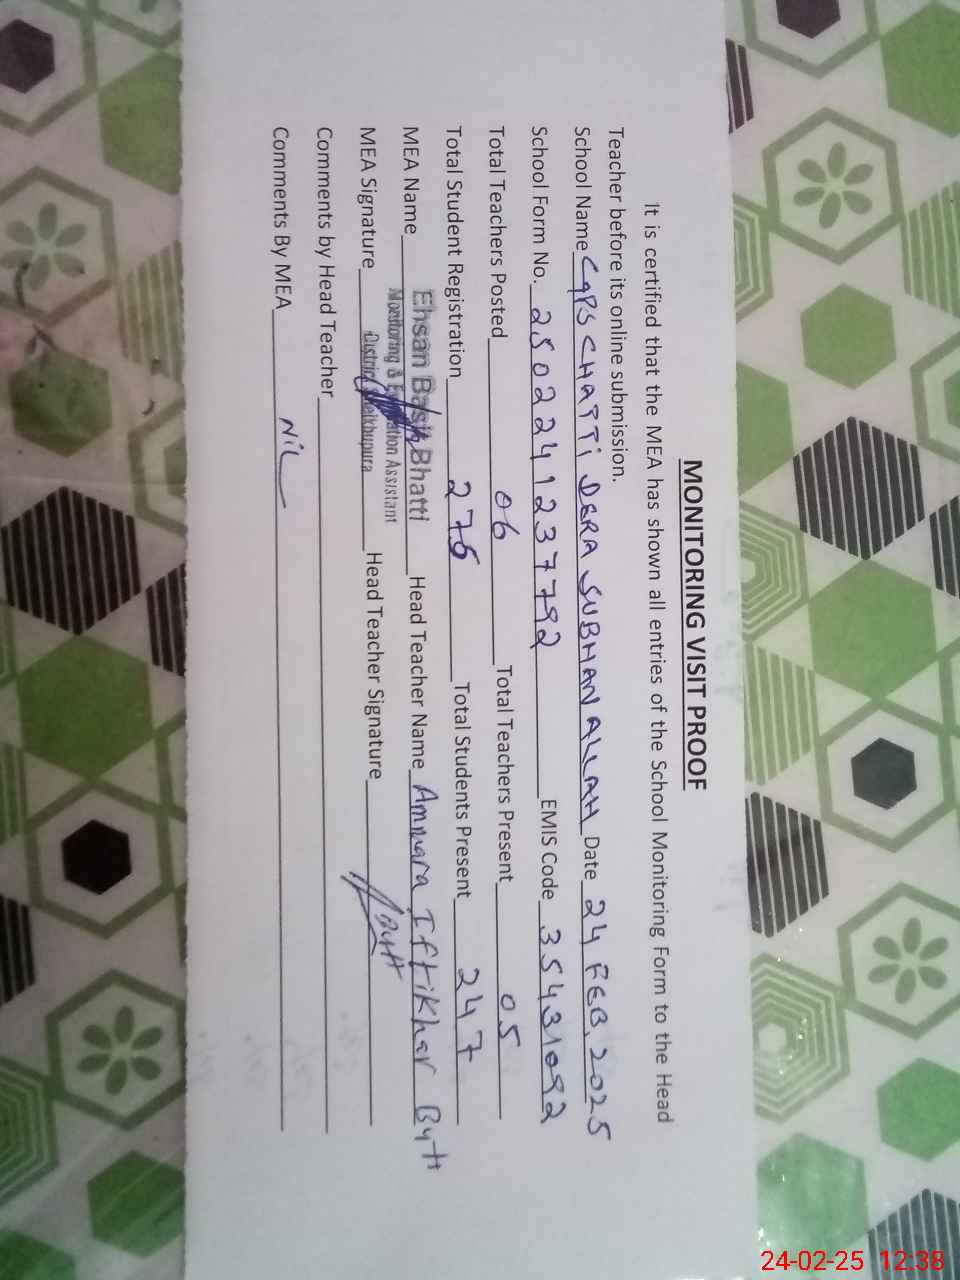 MONITORING VISIT PROOF
It is certified that the MEA has shown all entries of the School Monitoring Form to the Head
Teacher before its online submission.
School Name CGPS CHATTI DERA SUBHAN ALLAH Date 24 FEB, 2025
School Form No. 2502241237792 EMIS Code 35431092
Total Teachers Posted 06 Total Teachers Present 05
Total Student Registration 276 Total Students Present 247
MEA Name Ehsan Basit Bhatti Head Teacher Name Ammara Iftikhar Butt
Monitoring & Evaluation Assistant
District Sheikhupura
MEA Signature Head Teacher Signature Butt
Comments by Head Teacher
Comments By MEA Nil
24-02-25 12:38